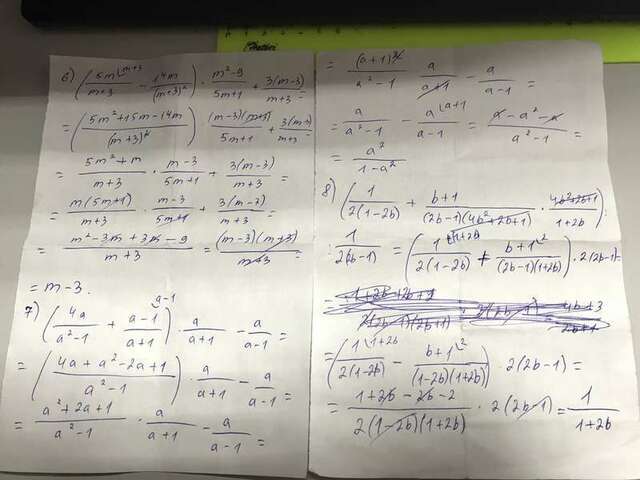 6) (5m^{m+3}/(m+3) - 14m/(m+3)²) · (m²-9)/(5m+1) + 3(m-3)/(m+3) =
= ((5m²+15m-14m)/(m+3)²) · (m-3)(m+3)/(5m+1) + 3(m-3)/(m+3) =
= (5m²+m)/(m+3) · (m-3)/(5m+1) + 3(m-3)/(m+3) =
= m(5m+1)/(m+3) · (m-3)/(5m+1) + 3(m-3)/(m+3) =
= (m²-3m+3m-9)/(m+3) = (m-3)(m+3)/(m+3) =
= m-3.
7) (4a/(a²-1) + (a-1)^{a-1}/(a+1)) · a/(a+1) - a/(a-1) =
= ((4a+a²-2a+1)/(a²-1)) · a/(a+1) - a/(a-1) =
= (a²+2a+1)/(a²-1) · a/(a+1) - a/(a-1) =
= (a+1)²/(a²-1) a/(a+1) - a/(a-1) =
= a/(a²-1) - a^{a+1}/(a-1) = (a-a²-a)/(a²-1) =
= a²/(1-a²)
8) (1/2(1-2b) + (b+1)/(2b-1)(4b²+2b+1) · (4b²+2b+1)/(1+2b)) :
: 1/2(2b-1) = (1^{1+2b}/2(1-2b) + (b+1)^{2}/(2b-1)(1+2b)) · 2(2b-1) =
= (1^{1+2b}/2(1-2b) - (b+1)^{2}/(1-2b)(1+2b)) · 2(2b-1) =
= (1+2b-2b-2)/2(1-2b)(1+2b) · 2(2b-1) = 1/(1+2b)